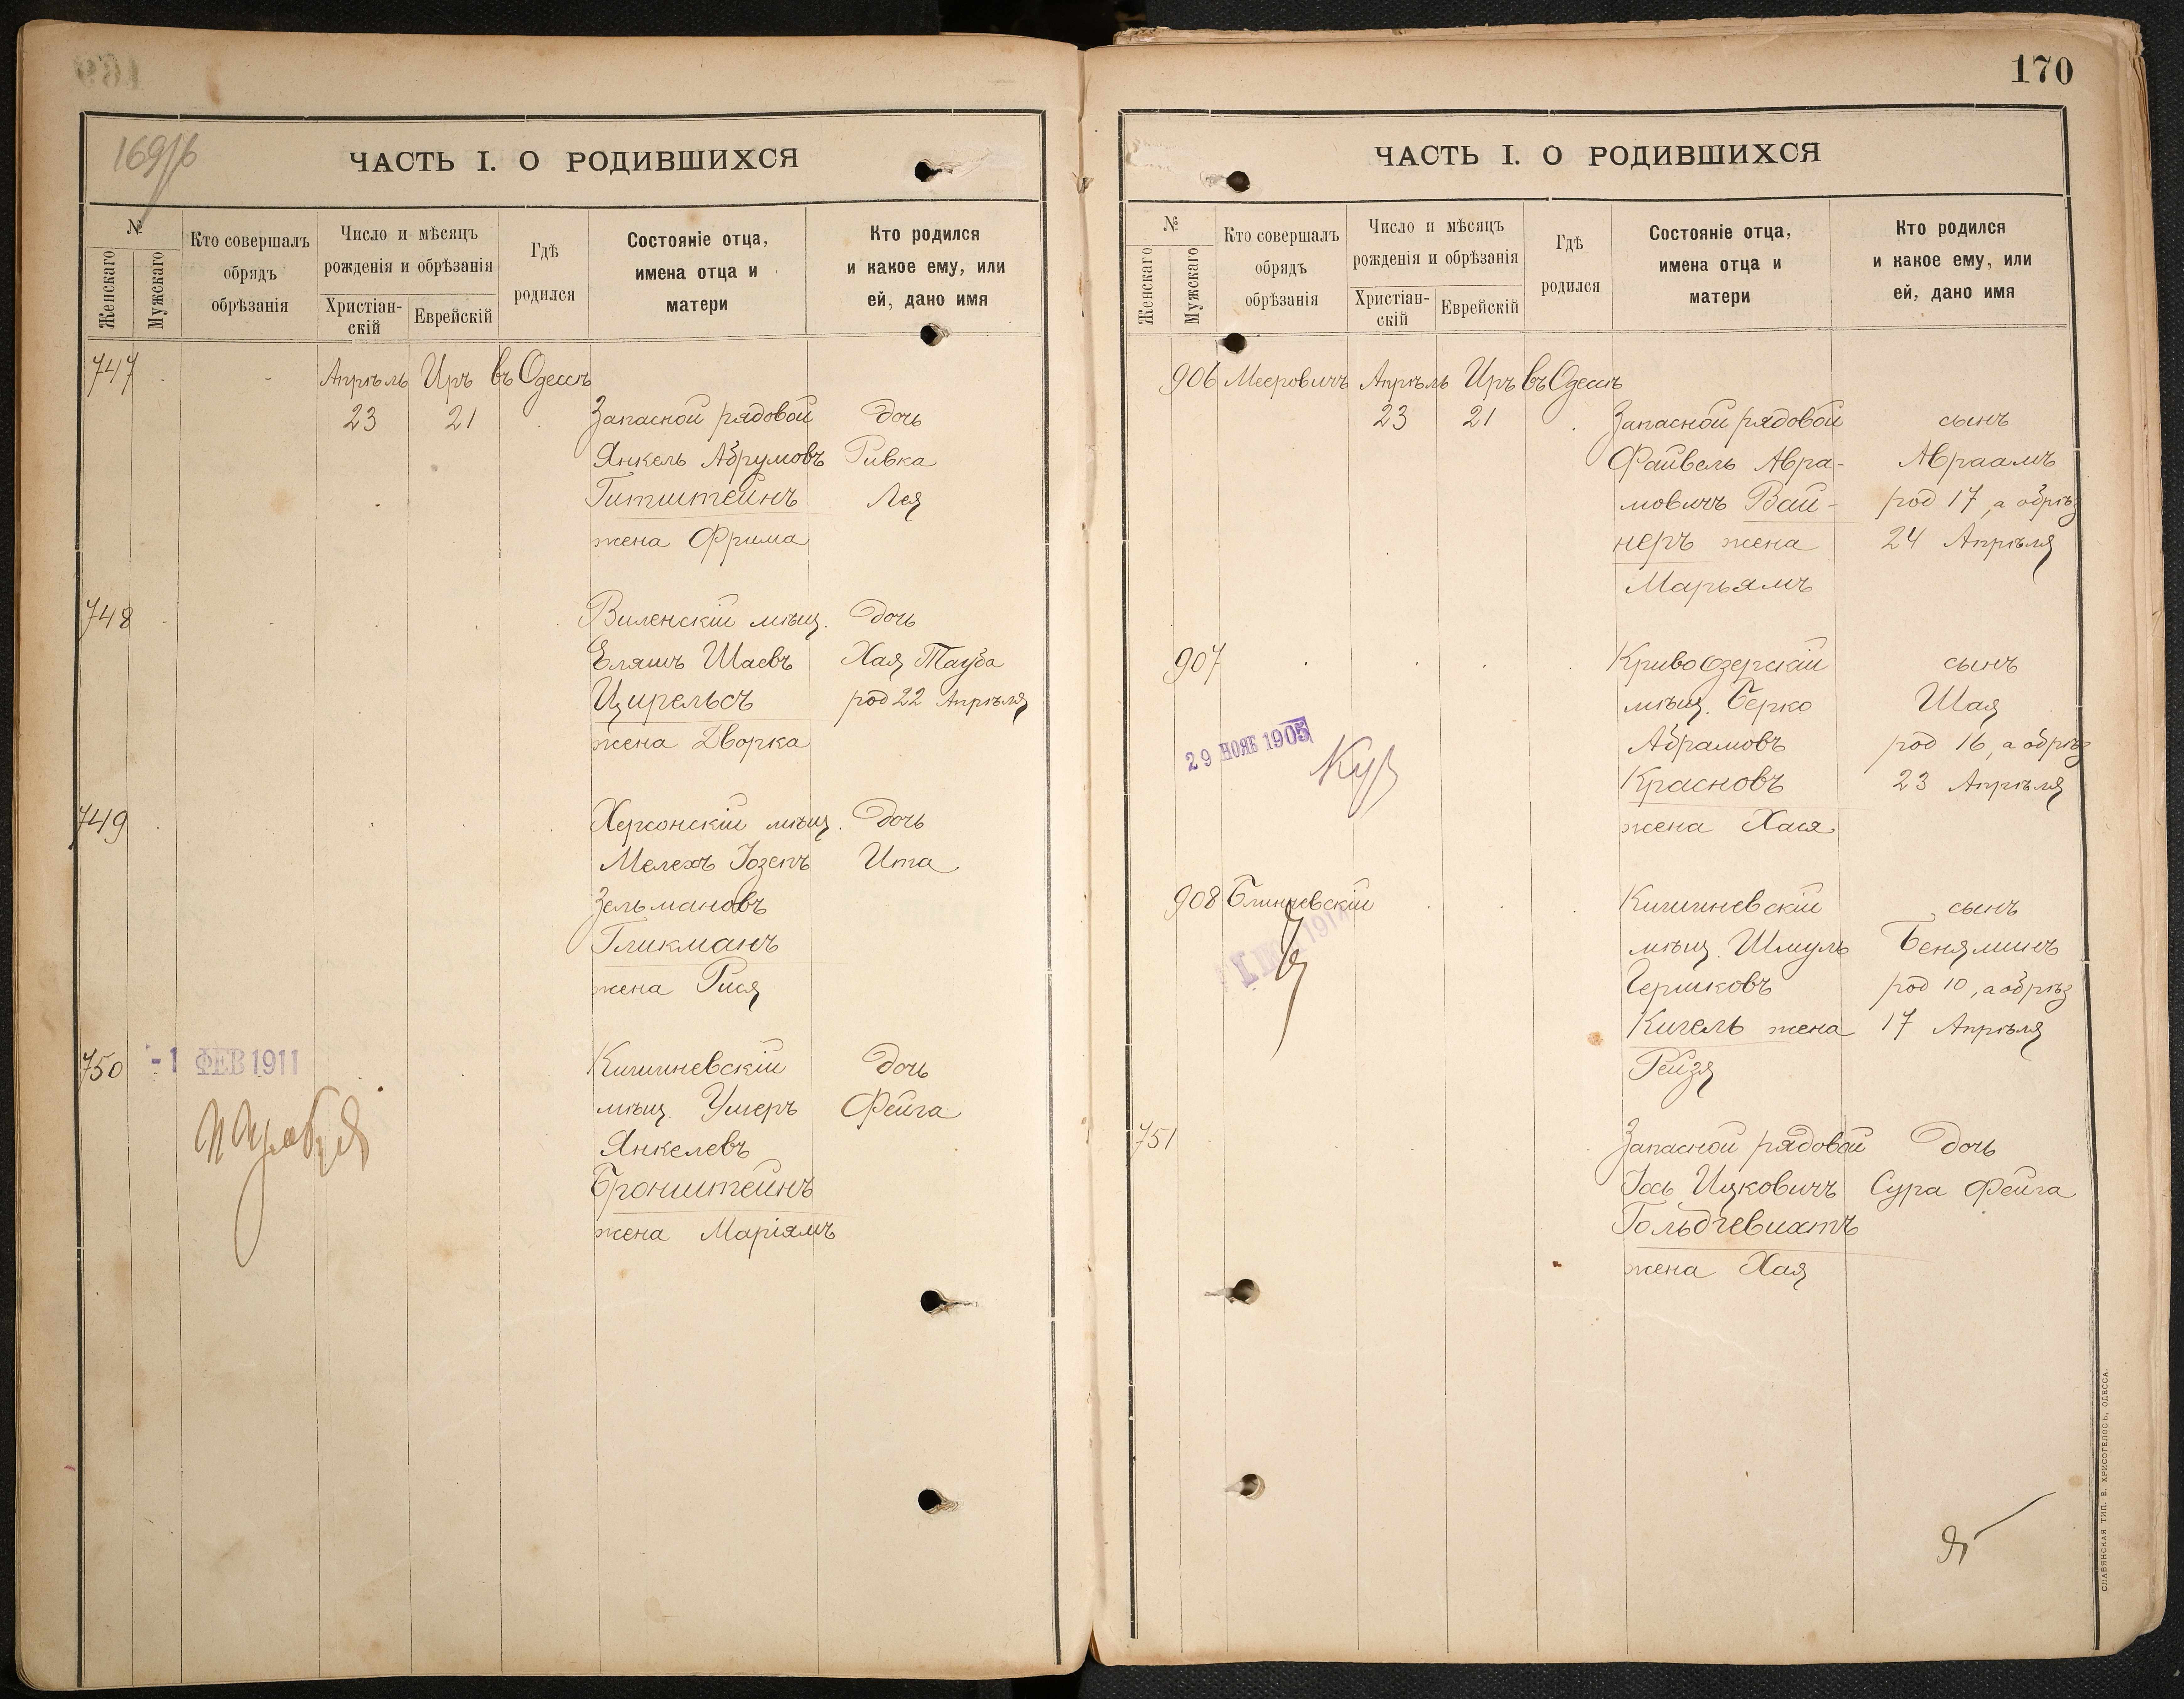 169/б
ЧАСТЬ I. О РОДИВШИХСЯ
№
Женскаго
Мужскаго
Кто совершалъ
обрядъ
обрѣзанія
Число и мѣсяцъ
рожденія и обрѣзанія
Христіан-
скій
Еврейскій
Гдѣ
родился
Состояніе отца,
имена отца и
матери
Кто родился
и какое ему, или
ей, дано имя
747 Апрѣль Иръ въ Одессѣ
23 21 Запасной рядовой дочь
Янкель Абрумовъ Ривка
Гитштейнъ Лея
жена Фрима
748 Виленскій мѣщ. дочь
Еляшъ Шаевъ Хая Тауба
Цирельсъ род 22 Апрѣля
жена Дворка
749 Херсонскій мѣщ. дочь
Мелехъ Іозепъ Ита
Зельмановъ
Гликманъ
жена Рися
750 -1 ФЕВ 1911 Кишиневскій дочь
мѣщ. Умеръ Фейга
Янкелевъ
Бронштейнъ
жена Маріямъ
170
ЧАСТЬ I. О РОДИВШИХСЯ
№
Женскаго
Мужскаго
Кто совершалъ
обрядъ
обрѣзанія
Число и мѣсяцъ
рожденія и обрѣзанія
Христіан-
скій
Еврейскій
Гдѣ
родился
Состояніе отца,
имена отца и
матери
Кто родился
и какое ему, или
ей, дано имя
906 Мееровичъ Апрѣль Иръ въ Одессѣ
23 21 Запасной рядовой сынъ
Файвель Авра- Авраамъ
мовичъ Вай- род 17, а обрѣз
неръ жена 24 Апрѣля
Марьямъ
907 Кривоозерскій сынъ
мѣщ. Берко Шая
29 НОЯБ 1905 Абрамовъ род 16, а обрѣз
Красновъ 23 Апрѣля
жена Хася
908 Блинчевскій Кишиневскій сынъ
мѣщ. Шмуль Беняминъ
Гершковъ род 10, а обрѣз
Кигель жена 17 Апрѣля
Рейзя
751 Запасной рядовой дочь
Іось Ицковичъ Сура Фейга
Гольдгевихтъ
жена Хая
СЛАВЯНСКАЯ ТИП. Е. ХРИСОГЕЛОСЪ, ОДЕССА.